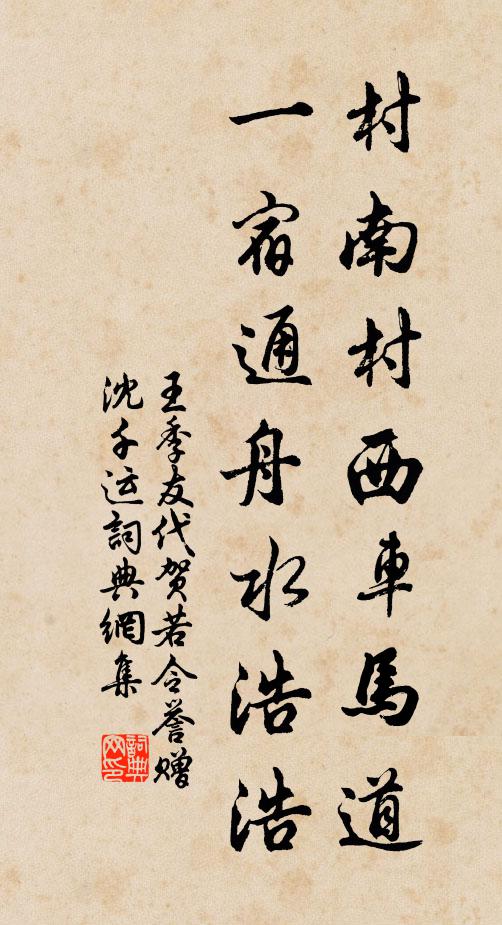 村南村西車馬道
一宿通舟水浩浩
王季友代賀若令譽贈
沈千运詞典網集
詞典网印